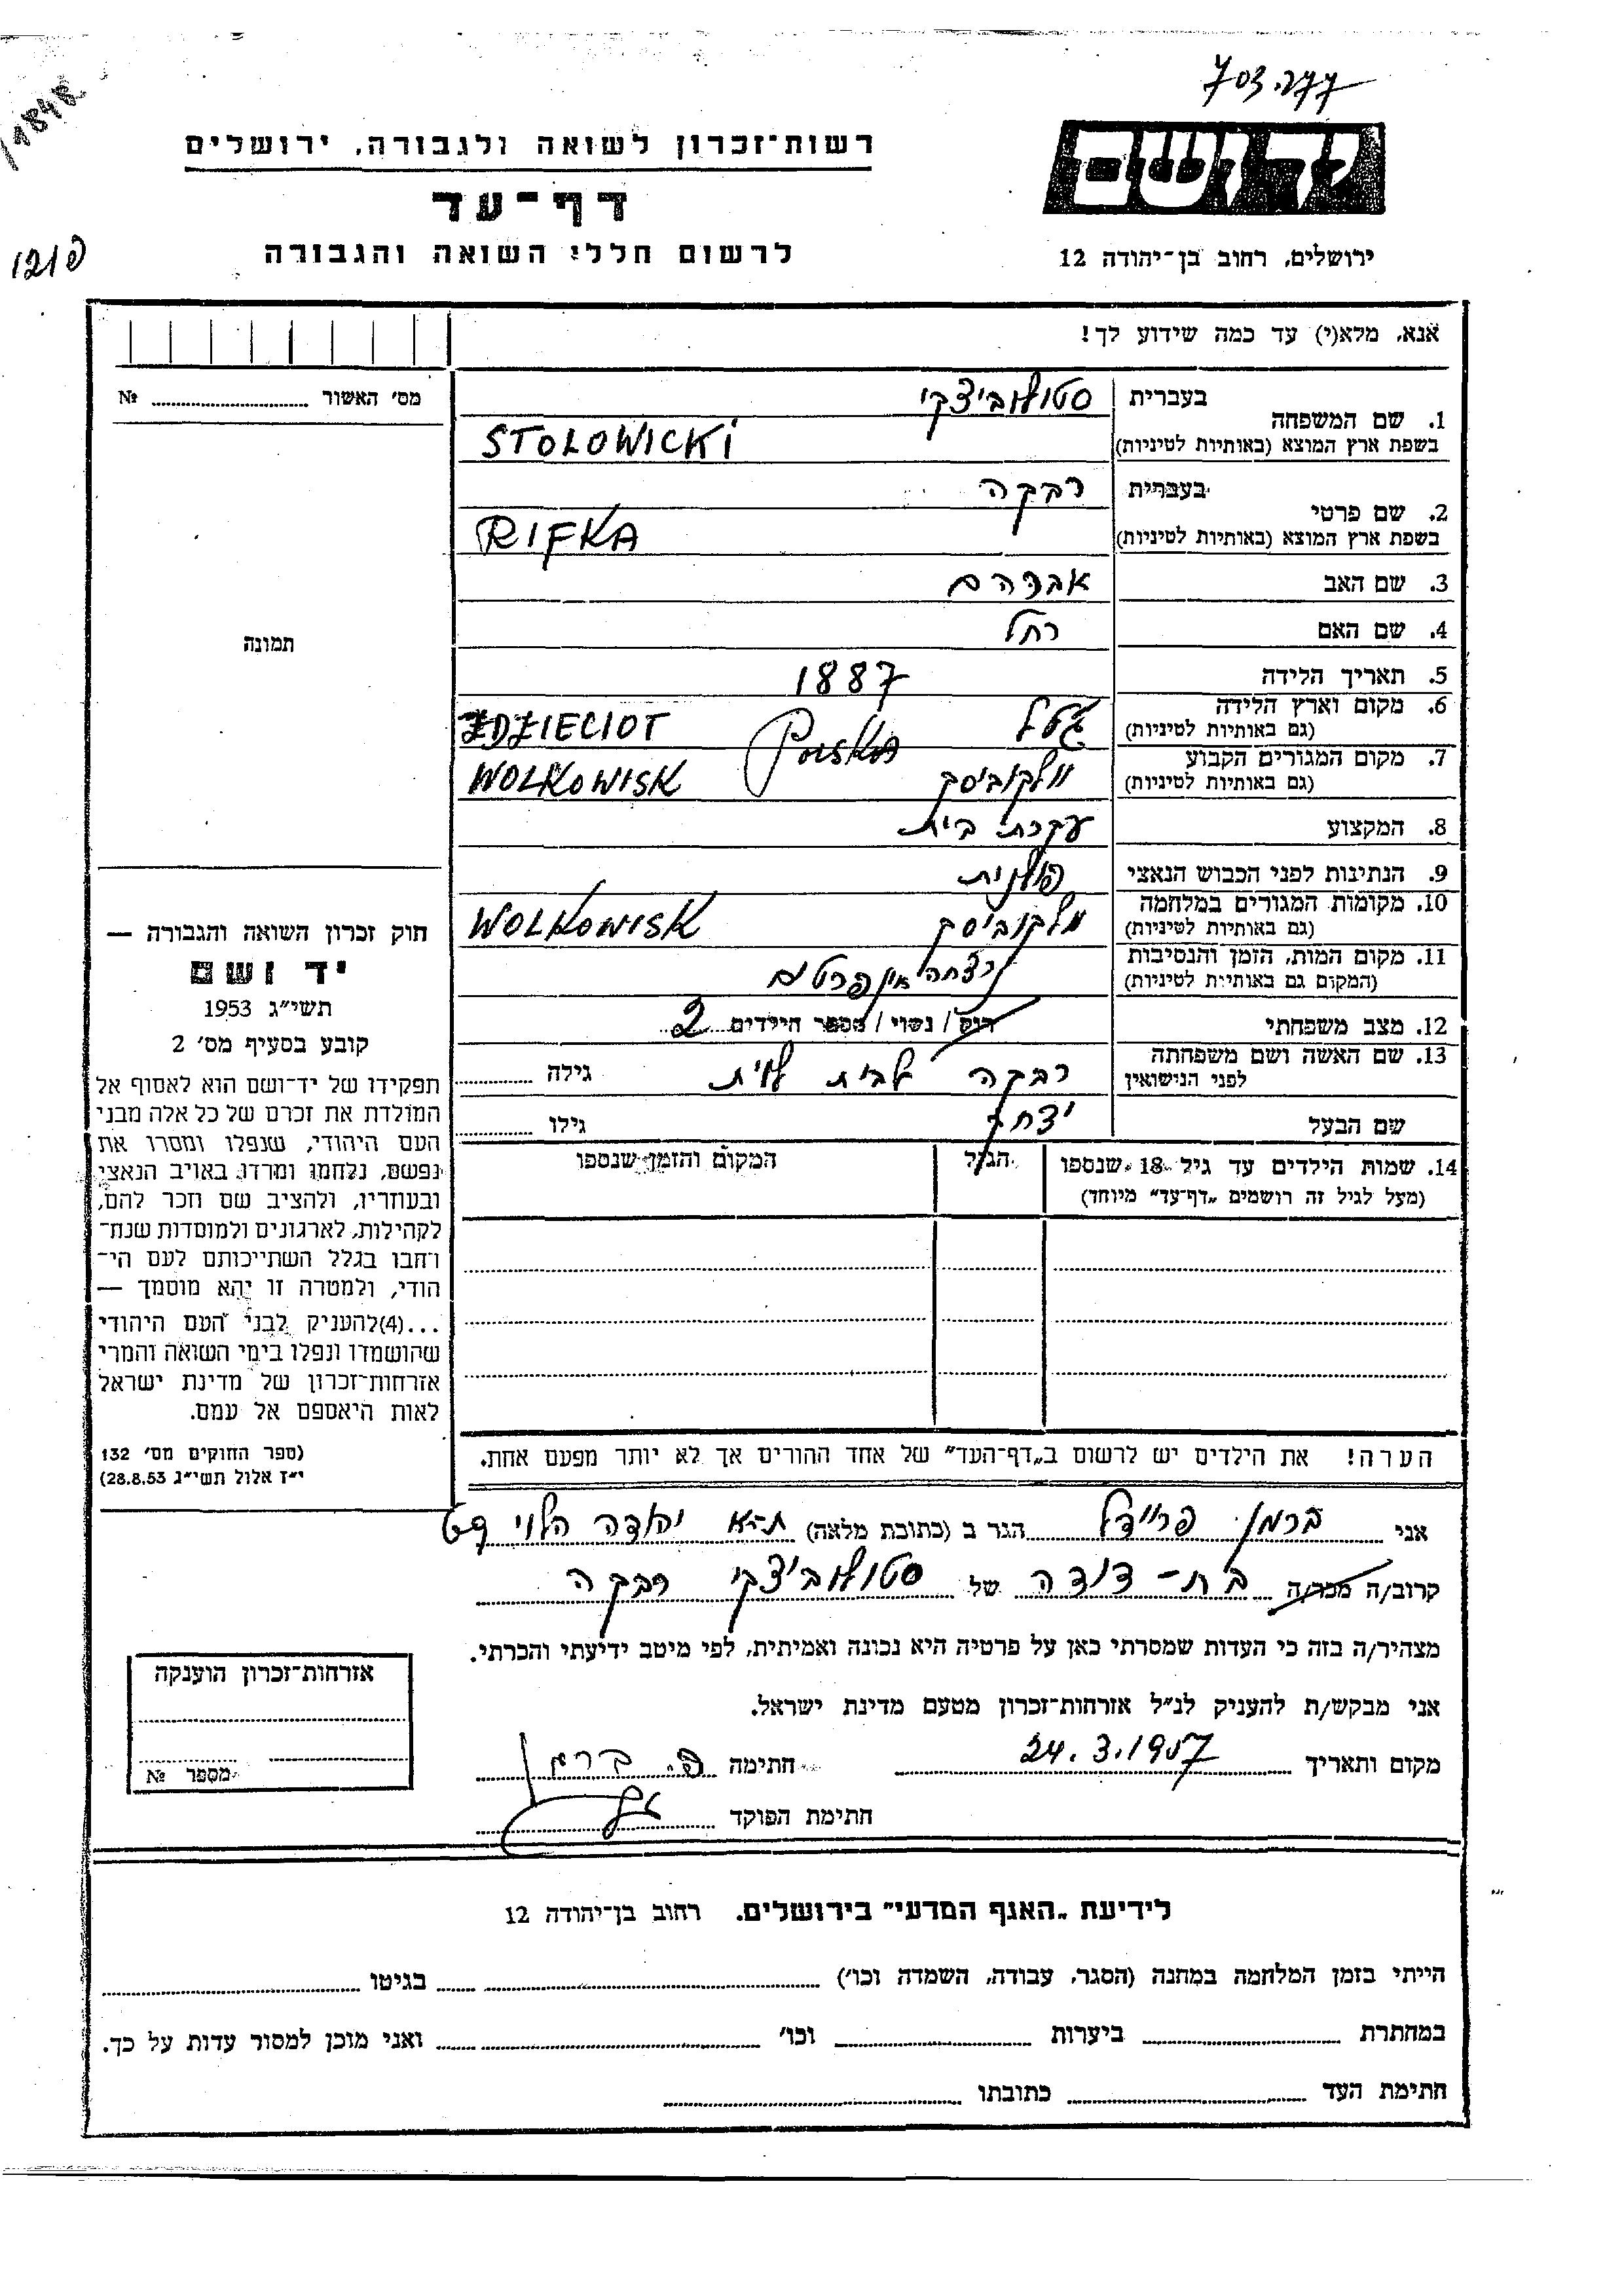 703.277
יד ושם
רשות־זכרון לשואה ולגבורה, ירושלים
דף־עד
לרשום חללי השואה והגבורה
ירושלים, רחוב בן־יהודה 12
אנא, מלא(י) עד כמה שידוע לך!
מס׳ האשור № 
1. שם המשפחה
בעברית סטולוביצקי
בשפת ארץ המוצא (באותיות לטיניות) STOLOWICKI
2. שם פרטי
בעברית רבקה
בשפת ארץ המוצא (באותיות לטיניות) RIFKA
3. שם האב אברהם
4. שם האם רחל
5. תאריך הלידה 1887
6. מקום וארץ הלידה
(גם באותיות לטיניות) ZDZIECIOT Polska
7. מקום המגורים הקבוע
(גם באותיות לטיניות) וולקוביסק WOLKOWISK
8. המקצוע עקרת בית
9. הנתינות לפני הכבוש הנאצי פולנית
10. מקומות המגורים במלחמה
(גם באותיות לטיניות) וולקוביסק WOLKOWISK
11. מקום המות, הזמן והנסיבות
(המקום גם באותיות לטיניות) נצחה אין פרטים
12. מצב משפחתי רוק / נשוי / מספר הילדים 2
13. שם האשה ושם משפחתה
לפני הנישואין רבקה לבית גילה
שם הבעל יצחק גילו
14. שמות הילדים עד גיל 18 שנספו הגיל המקום והזמן שנספו
(מעל לגיל זה רושמים „דף־עד״ מיוחד)
הערה! את הילדים יש לרשום ב„דף־העד״ של אחד ההורים אך לא יותר מפעם אחת.
תמונה
חוק זכרון השואה והגבורה —
יד ושם
תשי״ג 1953
קובע בסעיף מס׳ 2
תפקידו של יד־ושם הוא לאסוף אל
המולדת את זכרם של כל אלה מבני
העם היהודי, שנפלו ומסרו את
נפשם, נלחמו ומרדו באויב הנאצי
ובעוזריו, ולהציב שם וזכר להם,
לקהילות, לארגונים ולמוסדות שנח־
רחבו בגלל השתייכותם לעם הי־
הודי, ולמטרה זו יהא מוסמך —
...(4)להעניק לבני העם היהודי
שהושמדו ונפלו בימי השואה והמרי
אזרחות־זכרון של מדינת ישראל
לאות היאספם אל עמם.
(ספר החוקים מס׳ 132
י״ז אלול תשי״ג 28.8.53)
אני ברמן פריידל הגר ב (כתובת מלאה) ת״א יהודה הלוי
קרוב/ה מכר/ה בת־דודה של סטולוביצקי רבקה
מצהיר/ה בזה כי העדות שמסרתי כאן על פרטיה היא נכונה ואמיתית, לפי מיטב ידיעתי והכרתי.
אני מבקש/ת להעניק לנ״ל אזרחות־זכרון מטעם מדינת ישראל.
מקום ותאריך 24.3.1957 חתימה פ. ברמן
חתימת הפוקד
אזרחות־זכרון הוענקה
מספר №
לידיעת „האגף המדעי״ בירושלים. רחוב בן־יהודה 12
הייתי בזמן המלחמה במחנה (הסגר, עבודה, השמדה וכו׳) בגיטו
במחתרת ביערות וכו׳ ואני מוכן למסור עדות על כך.
חתימת העד כתובתו